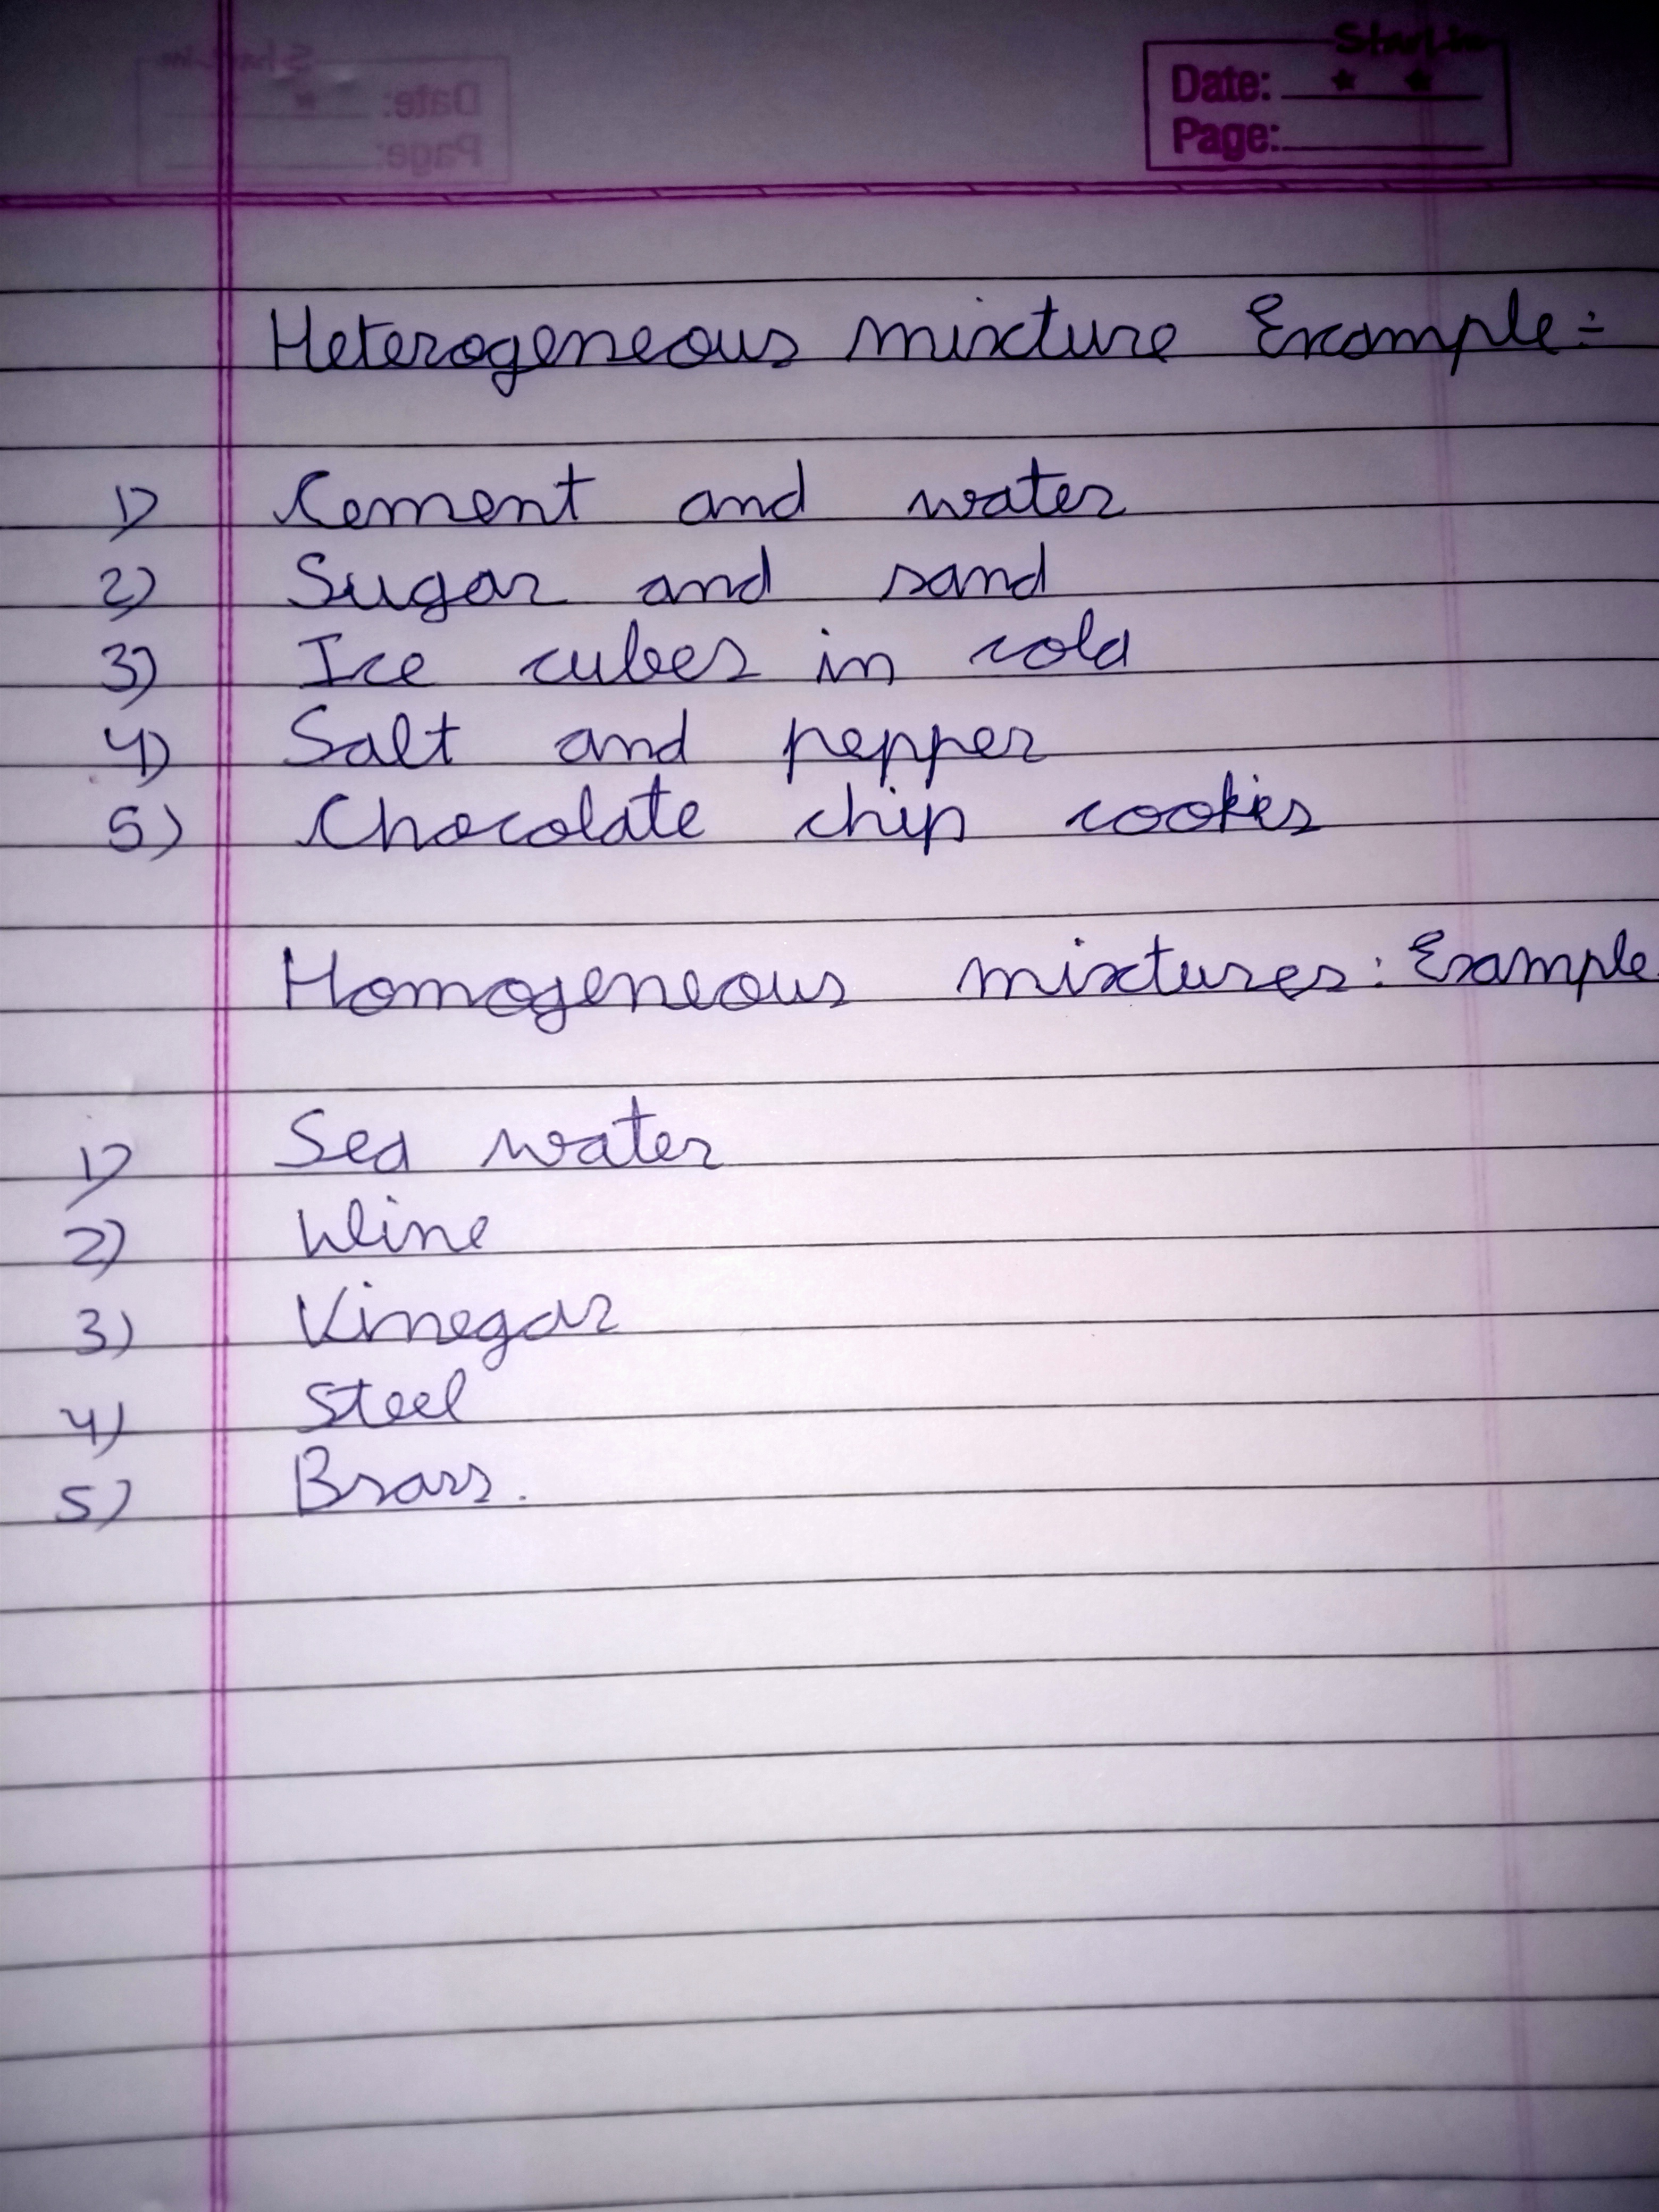 Start In
Date:
Page:
Heterogeneous mixture Example:-
1) Cement and water
2) Sugar and sand
3) Ice cubes in cold
4) Salt and pepper
5) Chocolate chip cookies
Homogeneous mixtures: Example
1) Sea water
2) Wine
3) Vinegar
4) Steel
5) Brass.